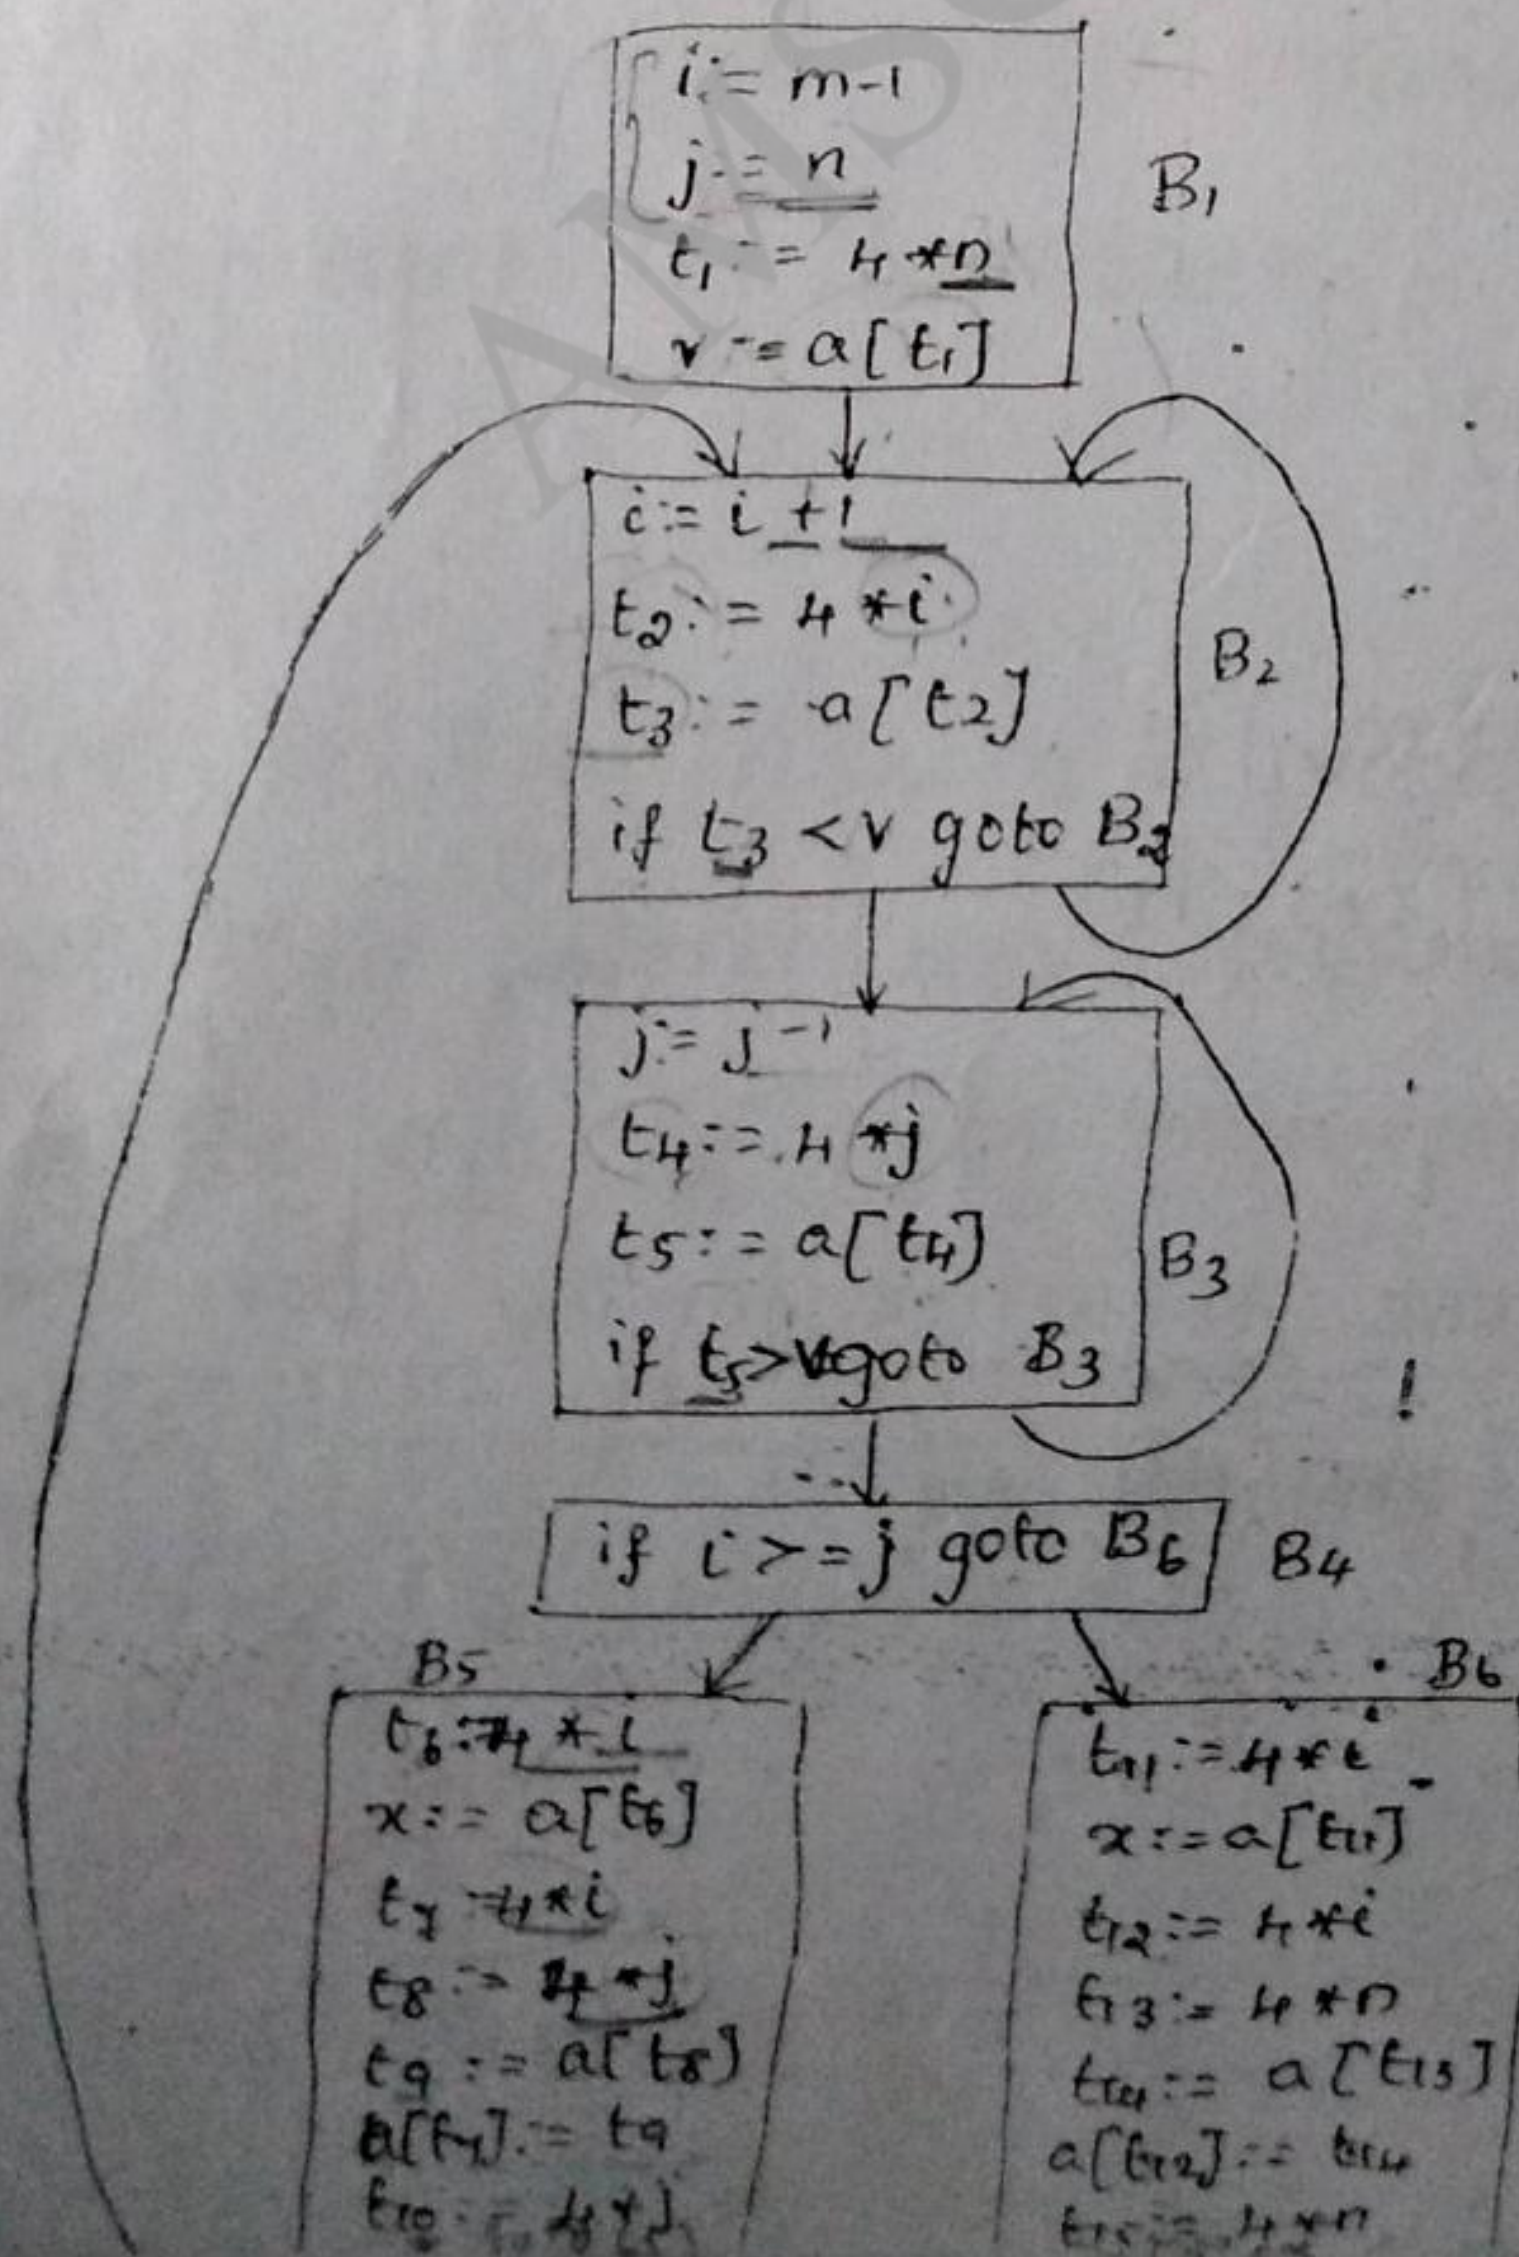 i := m-1
j := n
t1 := 4*n
v := a[t1]
B1
i := i+1
t2 := 4*i
t3 := a[t2]
if t3 < v goto B2
B2
j := j-1
t4 := 4*j
t5 := a[t4]
if t5 > v goto B3
B3
if i >= j goto B6
B4
B5
t6 := 4*i
x := a[t6]
t7 := 4*i
t8 := 4*j
t9 := a[t8]
a[t7] := t9
t10 := 4*j
B6
t11 := 4*i
x := a[t11]
t12 := 4*i
t13 := 4*n
t14 := a[t13]
a[t12] := t14
t15 := 4*n